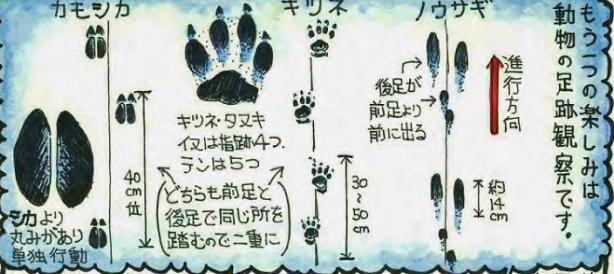 もう一つの楽しみは
動物の足跡観察です。
ノウサギ
進行方向
後足が
前足より
前に出る
約
14
cm
キツネ
30
~
50
cm
キツネ・タヌキ
イヌは指跡4つ.
テンは5つ
(どちらも前足と
後足で同じ所を
踏むので二重に)
カモシカ
40
cm
位
シカより
丸みがあり
単独行動